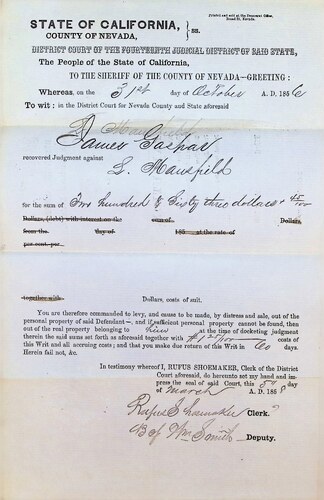 Printed and sold at the Democrat Office, Broad St. Nevada.
STATE OF CALIFORNIA, } ss.
COUNTY OF NEVADA,
DISTRICT COURT OF THE FOURTEENTH JUDICIAL DISTRICT OF SAID STATE,
The People of the State of California,
TO THE SHERIFF OF THE COUNTY OF NEVADA—GREETING:
Whereas, on the 31st day of October A. D. 1856
To wit: in the District Court for Nevada County and State aforesaid
James Gaspar
recovered Judgment against L. Mansfield
for the sum of Two hundred & Sixty three dollars & 45/100
Dollars, (debt) with interest on the sum of Dollars,
from the day of 185 at the rate of
per cent. per
together with Dollars, costs of suit.
You are therefore commanded to levy, and cause to be made, by distress and sale, out of the
personal property of said Defendant—, and if sufficient personal property cannot be found, then
out of the real property belonging to him at the time of docketing judgment
therein the said sums set forth as aforesaid together with costs of
this Writ and all accruing costs; and that you make due return of this Writ in 60 days.
Herein fail not, &c.
In testimony whereof I, RUFUS SHOEMAKER, Clerk of the District
Court aforesaid, do hereunto set my hand and im-
press the seal of said Court, this 5th day
of March A. D. 1858
Rufus Shoemaker Clerk.
By Wm Smith Deputy.